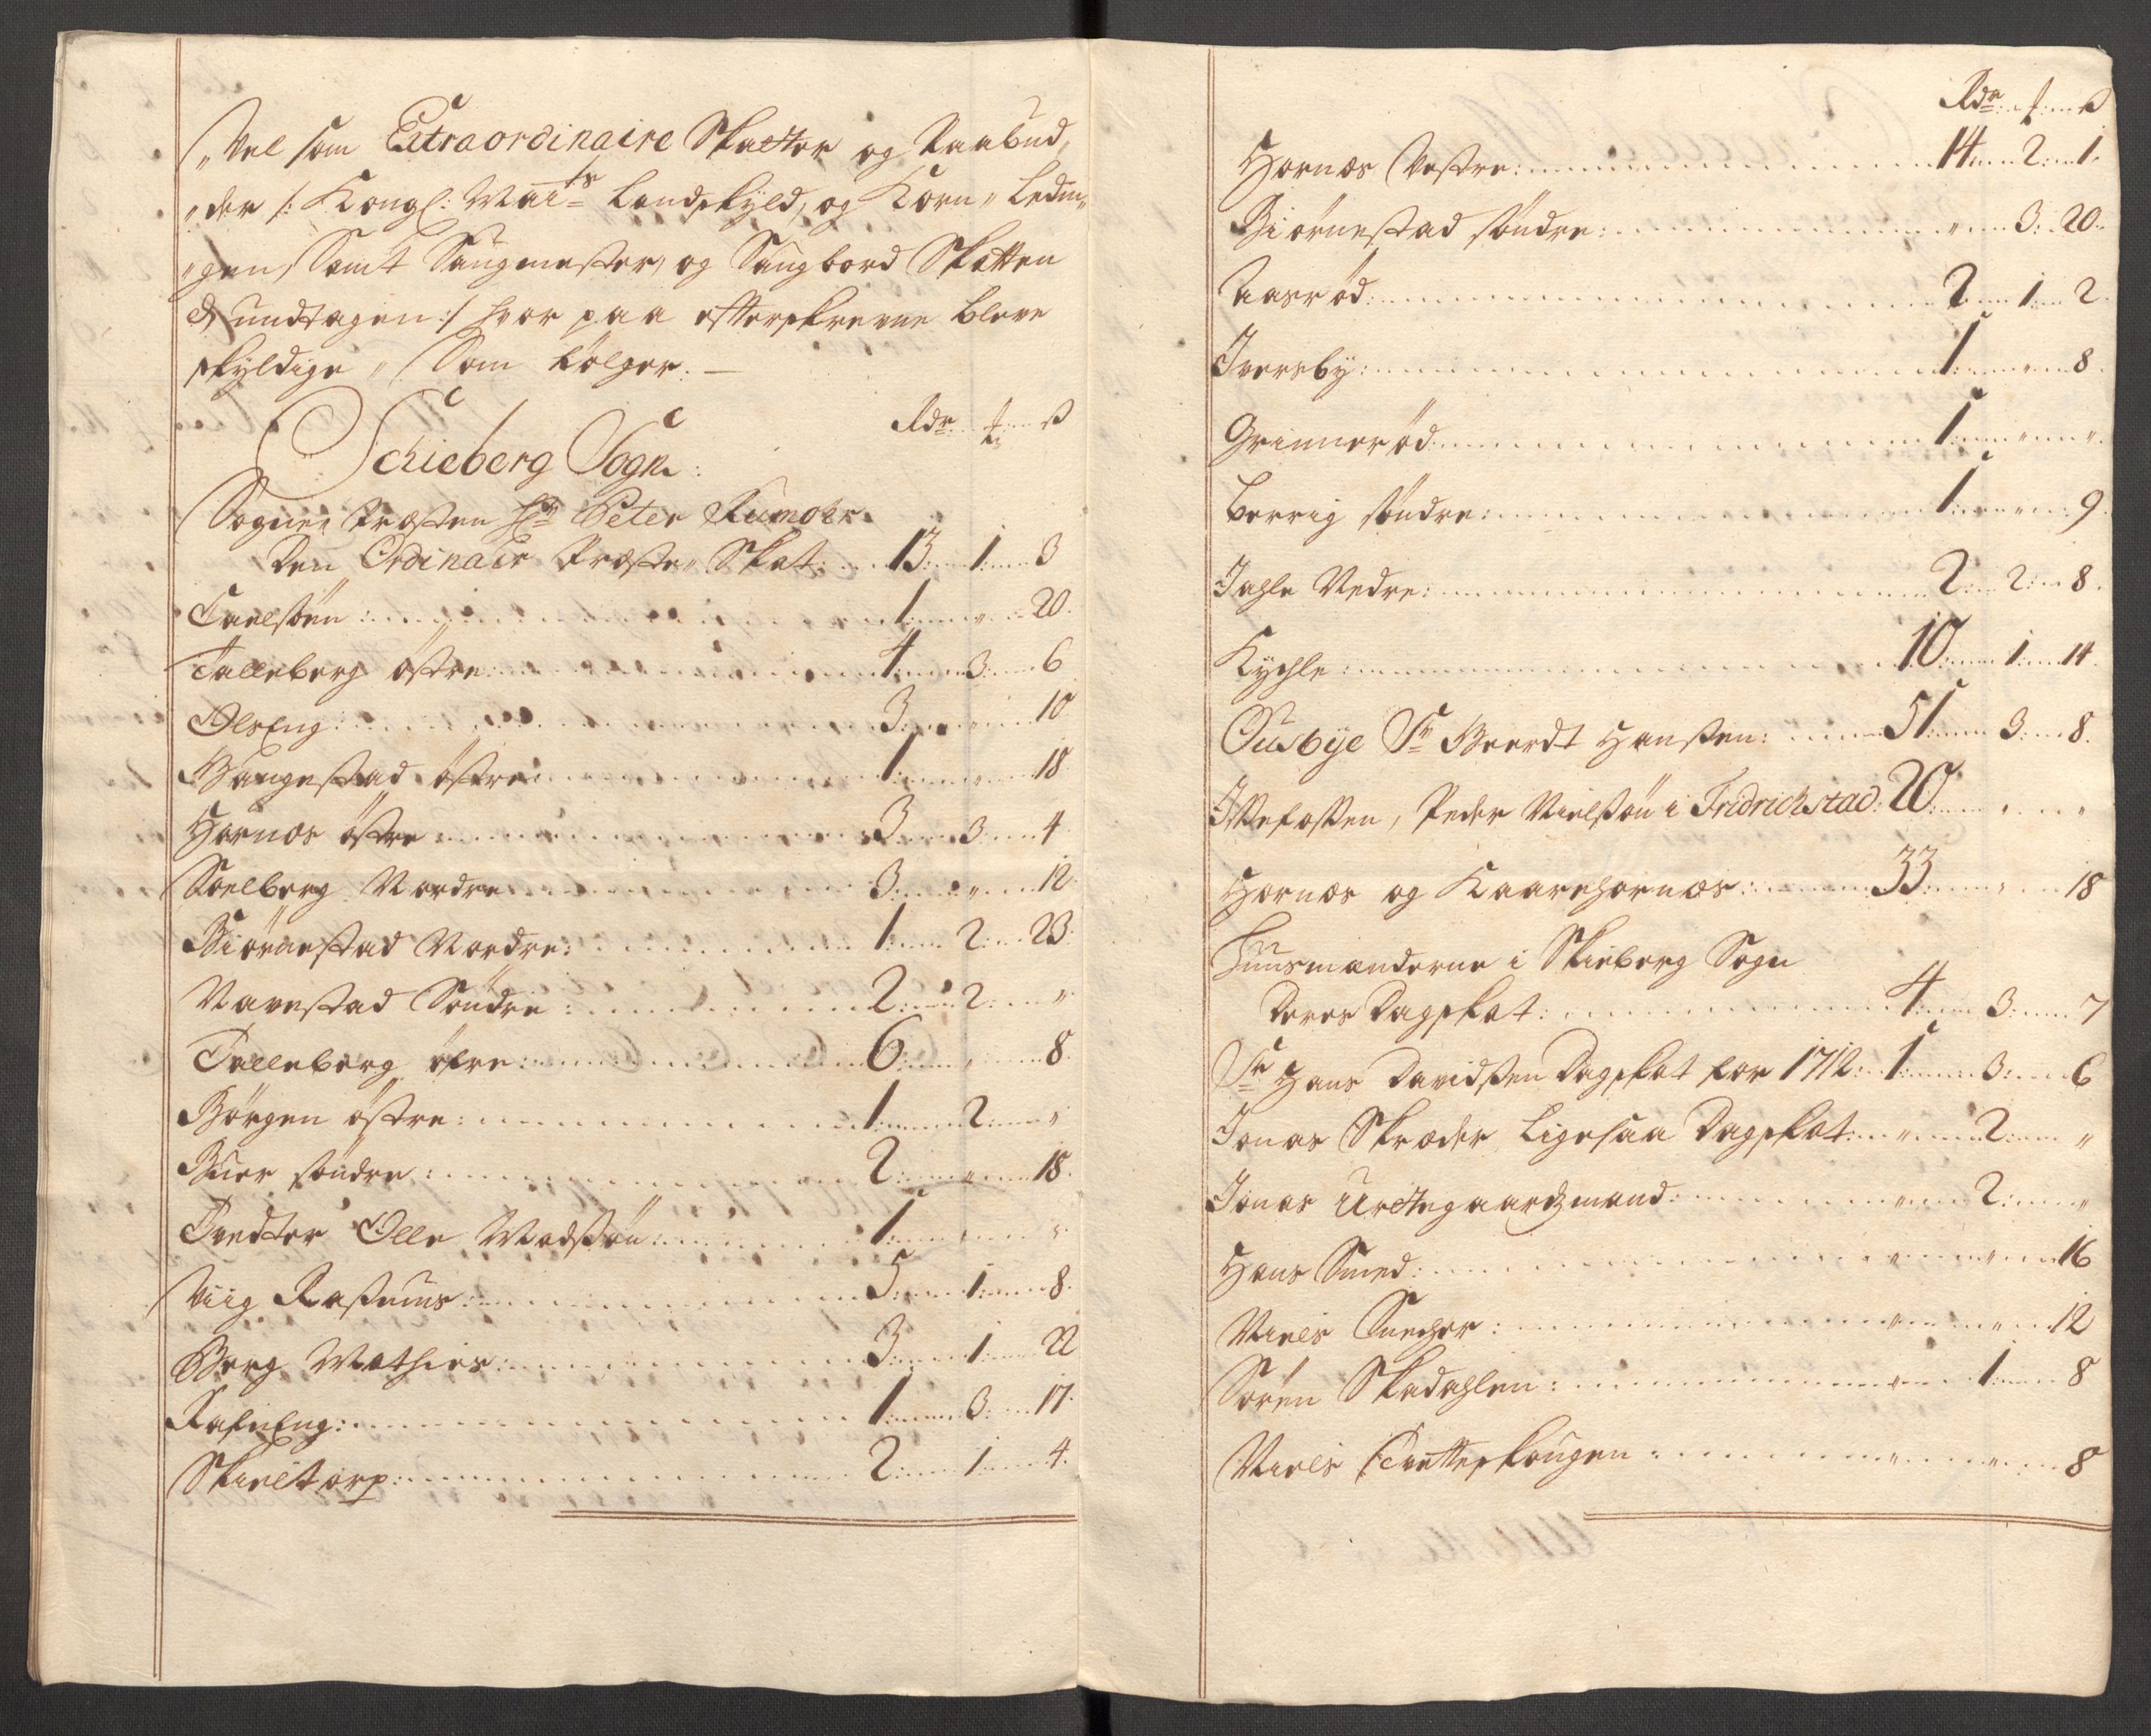 Vel som Extraordinaire Skatter og Paabud,
der /: Kongl: Maits Landskyld, og Korn, Ledin,
gen, Samt Saugmester, og Saugbord Skatten
undtagen :/ hvor paa efterskrevne bleve
skyldige, Som følger. —
Rdr ß
Schieberg Sogn:
Sogne Præsten Hr Peter Rumohr
Den Ordinair Præste Skat: 13: 1: 3
Carlsøen: 1: „: 20.
Talleberg østre: 4: 3: 6
OlsEng: 3: „: 10
Haugestad østre: 1: „: 18
Hornæs østre: 3: 3: 4
Soelberg Nordre: 3: „: 12
Biørnestad Nordre: 1: 2: 23
Navestad Søndre: 2: 2: „
Talleberg øfre: 6: „: 8
Børgen østre: 1: 2: „
Buer søndre: 2: „: 18.
Tvedter Olle Madssøn: 1: „: „
Viig Rasmus: 5: 1: 8.
Berg Mathies: 3: 1: 22
RafnEng: 1: 3: 17.
Skieltorp: 2: 1: 4.
Rdr ß
Hornæs Vestre: 14: 2: 1.
Biørnestad søndre: „: 3: 20.
Aasrød: 2: 1: 2
Iversby: 1: „: 8.
Grimmerød: 1: „: „.
Berrig søndre: 1: „: 9.
Jahle Nedre: 2: 2: 8.
Kychle: 10: 1: 14.
Ousbye Sr Beerdt Hanssen: 51: 3: 8.
Issefossen, Peder Nielssøn i Fridrichstad: 20: „: „
Hornæs og Kaarehornæs: 33: „: 18
Huusmænderne i Skieberg Sogn
Deres Dagskat: 4: 3: 7
Sr Hans Davidssen Dagskat for 1712: 1: 3: 6
Jonas Skræder Ligesaa Dagskat: „: 2: „
Jonas Urtegaardzmand: „: 2: „
Hans Smed: „: „: 16
Niels Snecher: „: „: 12
Søren Skadahlen: „: 1: 8
Niels Tvetteskougen: „: „: 8